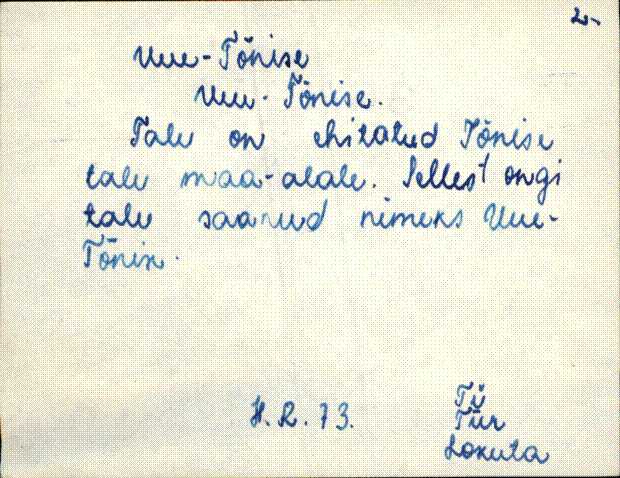 2.-
Uue-Tõnise
Uuu-Tõnise.
Talu on ehitatud Tõnise
talu maa-alale. Sellest ongi
talu saanud nimeks Uue-
Tõnise.
H. R. 73.
Tü
Tür
Lokuta